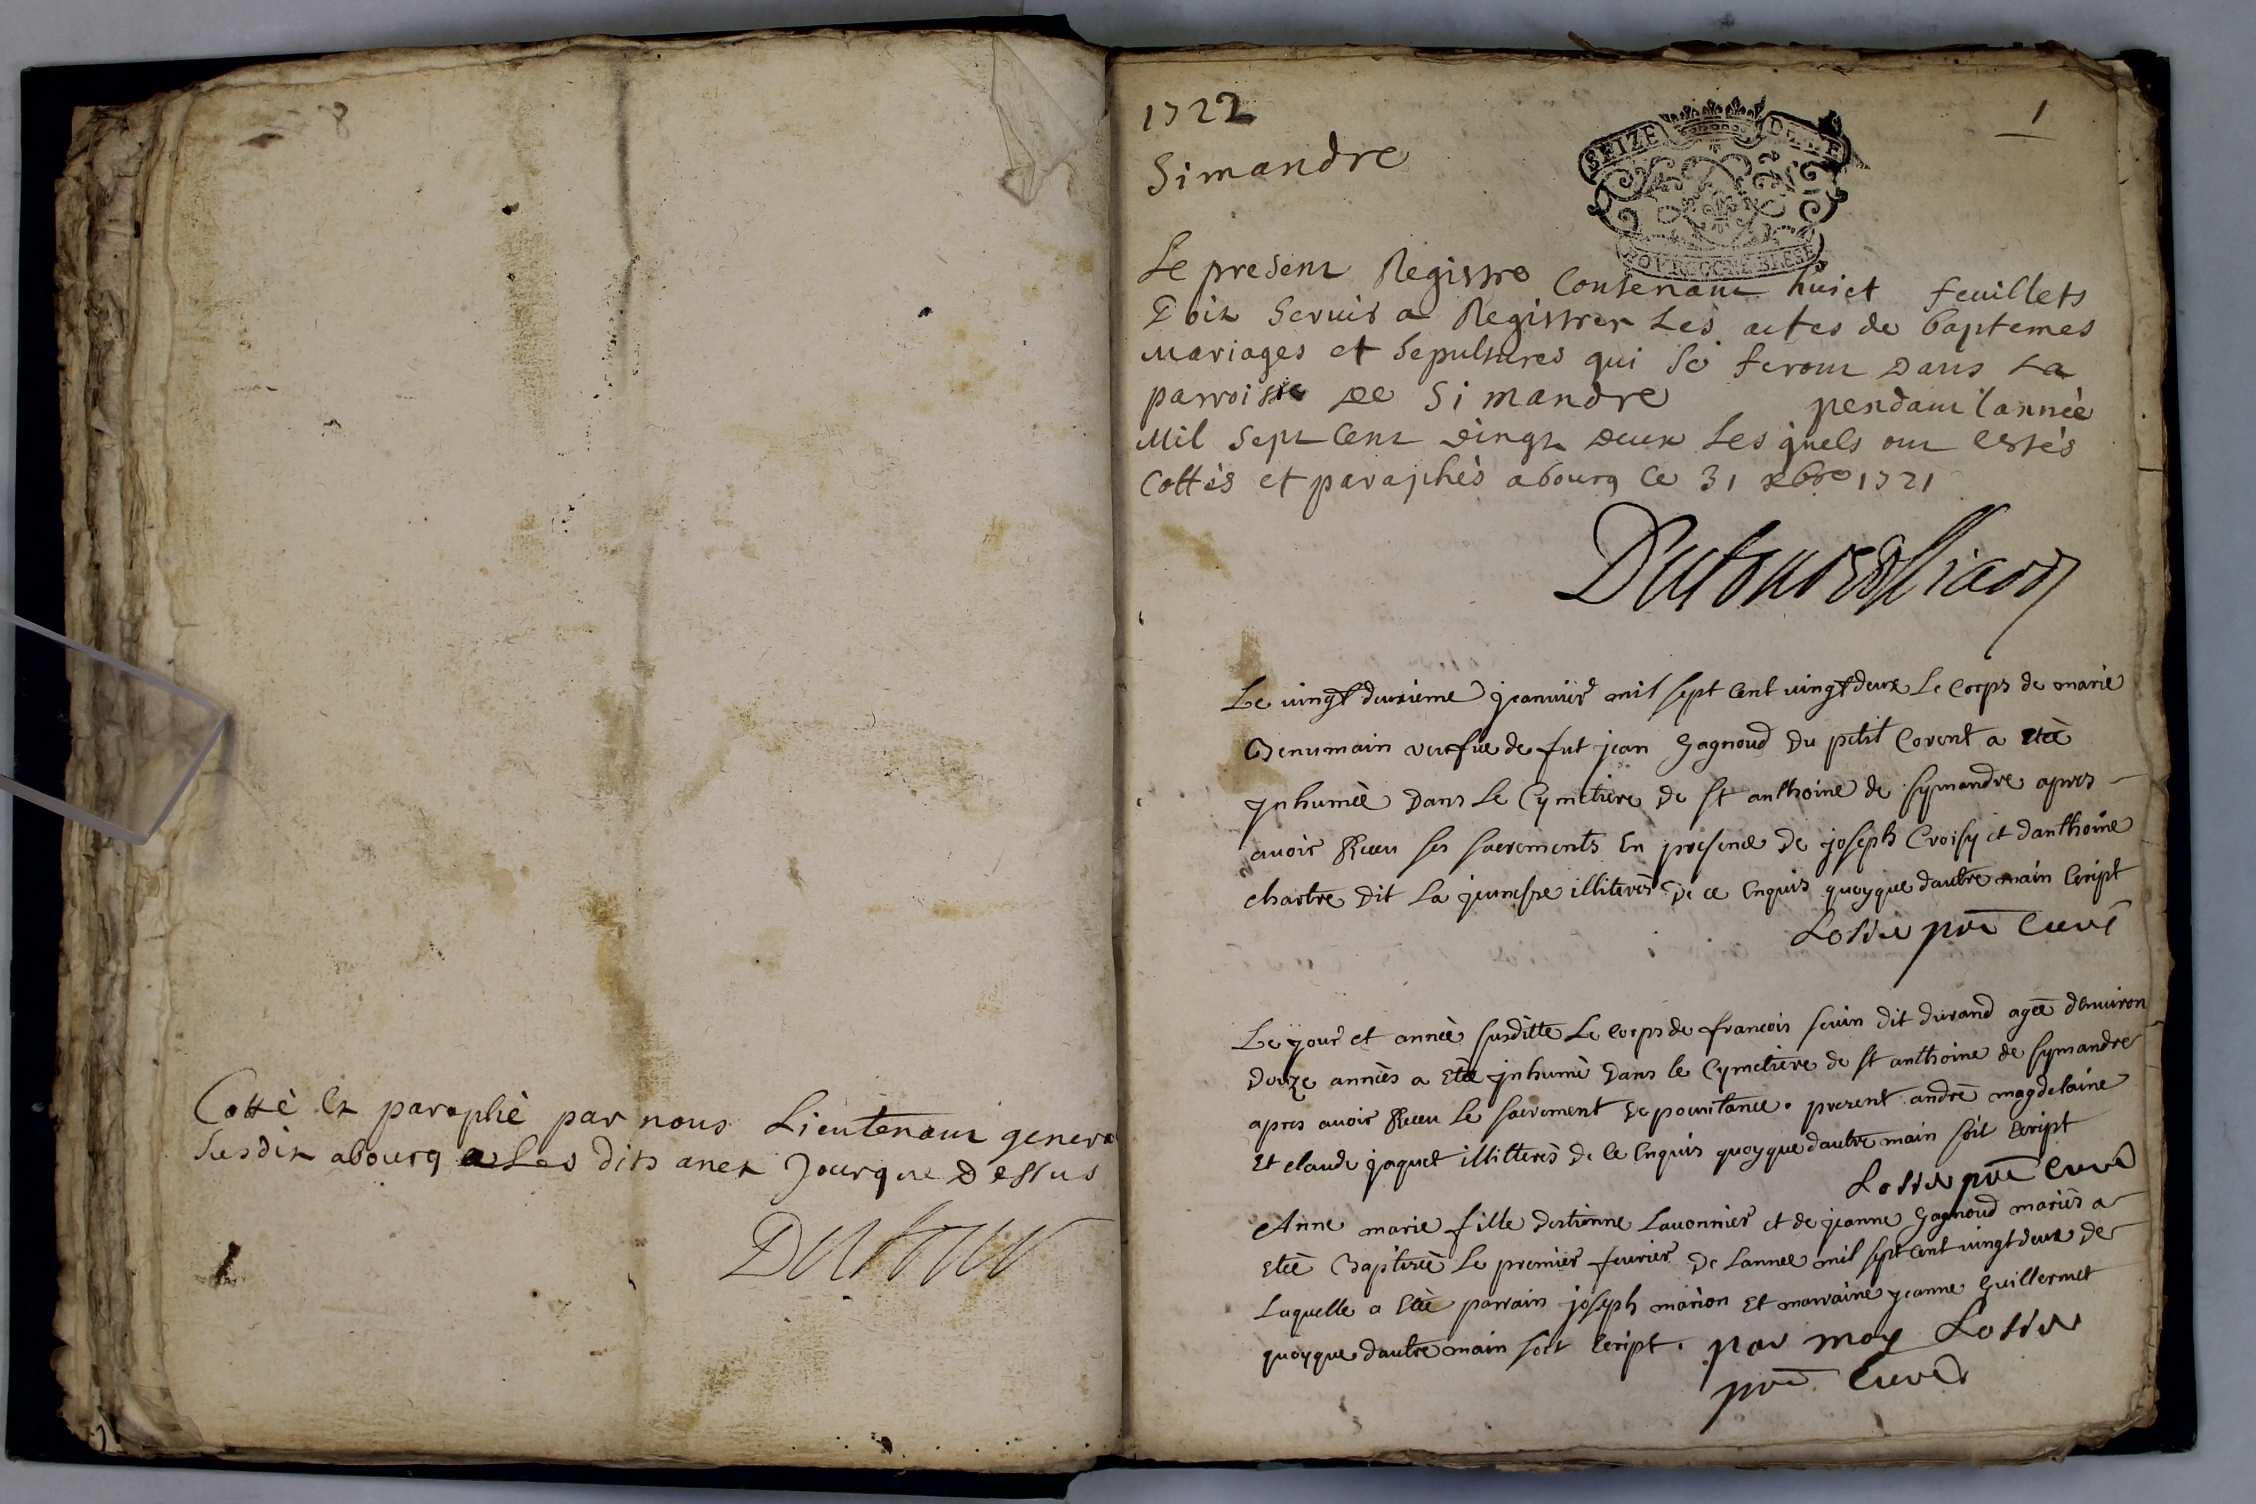 8
Cotté et paraphé par nous Lieutenant genera
susdit a bourg Les dits an et Jour que Dessus
Dutour
1722
1
Simandre
SEIZE DEN
Le present Registre Contenant huict feuillets
Doit Servir a Registrer Les actes de baptemes
Mariages et Sepultures qui se feront Dans La
parroisse De Simandre pendant l'année
Mil Sept Cent Vingt Deux Les quels ont estés
Cottés et paraphés a bourg Ce 31 xbre 1721
Dutour
Le vingt deuxieme jeanvier mil sept cent vingt deux Le Corps de marie
veufue de fut jean Gagnoud Du petit Corent a etée
jnhumée Dans Le Cymetiere De st anthoine de symandre apres
avoir Receu ses sacrements En presence De joseph Croisy et danthoine
chartre Dit La jeunesse illiterés De ce Enquis quoyque dautre main Ecript
pre Curé
Le jour et année susditte Le Corps de francois seuin dit durand agée denuiron
Douze années a etée jnhumé Dans le Cymetiere de st anthoine de symandre
apres avoir Receu Le sacrement De penitance. present andré magdelaine
Et claude jaquet illitterés De Ce Enquis quoyque dautre main soit Ecript
pre Curé
Anne marie fille destienne Lauonnier et de jeanne Gagnoud mariés a
etée Baptisée Le premier feurier De Lannée mil sept cent vingt deux De
Laquelle a Etée parrain joseph marion Et marraine jeanne Guillermet
quoyque dautre main soit Ecript. par moy
pre Curé